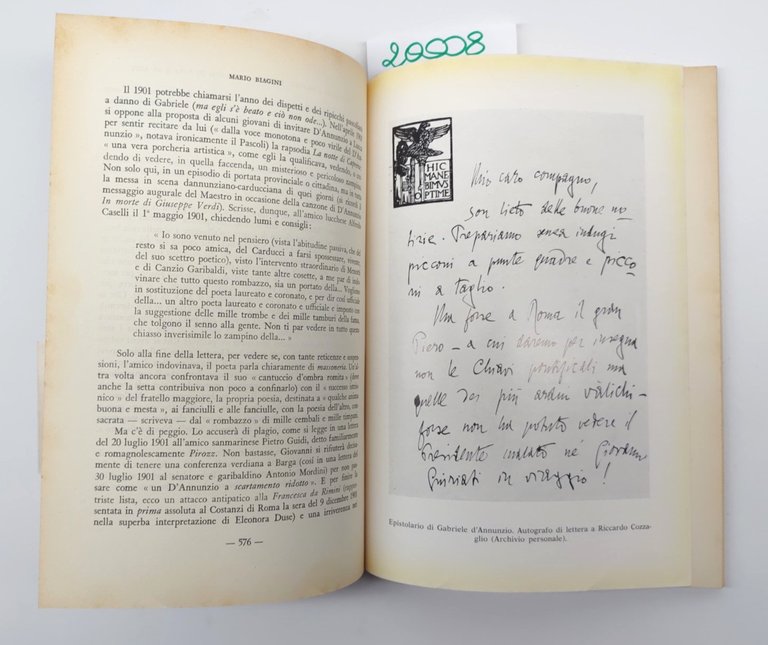 20008
MARIO BIAGINI
Il 1901 potrebbe chiamarsi l'anno dei dispetti e dei ripicchi
a danno di Gabriele (ma egli s'è beato e ciò non ode...). Nell'aprile
si oppone alla proposta di alcuni giovani di invitare D'Annunzio a Lucca
per sentir recitare da lui (« dalla voce monotona e poco virile del D'An-
nunzio », notava ironicamente il Pascoli) la rapsodia La notte di Caprera,
« una vera porcheria artistica », come egli la qualificava, vedendo, o cre-
dendo di vedere, in quella faccenda, un misterioso e pericoloso
Non solo qui, in un episodio di portata provinciale o cittadina, ma in tutta
la messa in scena dannunziano-carducciana di quei giorni (si ricordi il
messaggio augurale del Maestro in occasione della canzone di D'Annunzio
In morte di Giuseppe Verdi). Scrisse, dunque, all'amico lucchese Alfredo
Caselli il 1° maggio 1901, chiedendo lumi e consigli:
« Io sono venuto nel pensiero (vista l'abitudine passiva, che del
resto si sa poco amica, del Carducci a farsi spossessare, vivente,
del suo scettro poetico), visto l'intervento straordinario di Menotti
e di Canzio Garibaldi, viste tante altre cosette, a me par di indo-
vinare che tutto questo rombazzo, sia un portato della... Vogliono
in sostituzione del poeta laureato e coronato, e per dir così ufficiale
della... un altro poeta laureato e coronato e ufficiale e imposto con
la suggestione delle mille trombe e dei mille tamburi della fama,
che tolgono il senno alla gente. Non ti par vedere in tutto questo
chiasso inverisimile lo zampino della... »
Solo alla fine della lettera, per vedere se, con tante reticenze e sospen-
sioni, l'amico indovinava, il poeta parla chiaramente di massoneria. Un'al-
tra volta ancora confrontava il suo « cantuccio d'ombra romita » (dove
anche la setta contribuiva non poco a confinarlo) con il « successo
nico » del fratello maggiore, la propria poesia, destinata a « qualche anima
buona e mesta », ai fanciulli e alle fanciulle, con la poesia dell'altro, con-
sacrata — scriveva — dal « rombazzo » di mille cembali e mille timpani.
Ma c'è di peggio. Lo accuserà di plagio, come si legge in una lettera
del 20 luglio 1901 all'amico sanmarinese Pietro Guidi, detto familiarmente
e romagnolescamente Pirozz. Non bastasse, Giovanni si rifiuterà decisa-
mente di tenere una conferenza verdiana a Barga (così in una lettera del
30 luglio 1901 al senatore e garibaldino Antonio Mordini) per non pas-
sare come « un D'Annunzio a scartamento ridotto ». E per finire la
triste lista, ecco un attacco antipatico alla Francesca da Rimini (rappre-
sentata in prima assoluta al Costanzi di Roma la sera del 9 dicembre 1901
nella superba interpretazione di Eleonora Duse) e una irriverenza
— 576 —
HIC
MANE
BIMVS
OPTIME
Mio caro compagno,
son lieto delle buone no-
tizie. Prepariamo senza indugi
picconi a punte quadre e picco-
ni a taglio.
Ma forse a Roma il gran
Piero — a cui daremo per insegna
non le Chiavi pontificali ma
quelle dei più ardui vàlichi —
forse non ha potuto vedere il
Presidente malato né Giovanni
Giuriati in viaggio!
Epistolario di Gabriele d'Annunzio. Autografo di lettera a Riccardo Cozza-
glio (Archivio personale).